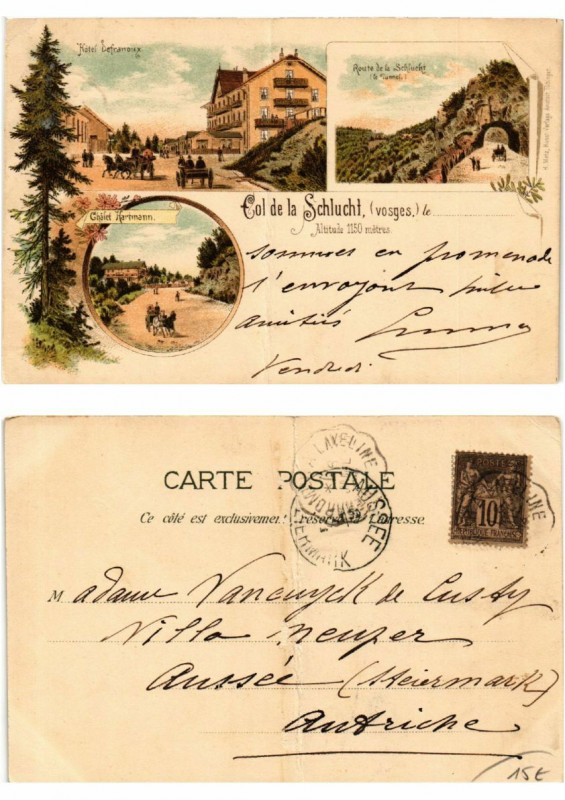 Hôtel Lefranoux
Route de la Schlucht
(le Tunnel.)
Châlet Hartmann.
Col de la Schlucht, (vosges.) le
Altitude 1150 mètres.
sommes en promenade
t'envoyant
amitiés
Vendredi
CARTE POSTALE
Ce côté est exclusivement réservé à l'adresse.
LAVELINE
AUSSEE
STEIERMARK
POSTES
10
REPUBLIQUE FRANÇAISE
LAVELINE
Madame Vancuyck de Custy
Villa Neuper
Aussée (Steiermark)
Autriche
15E